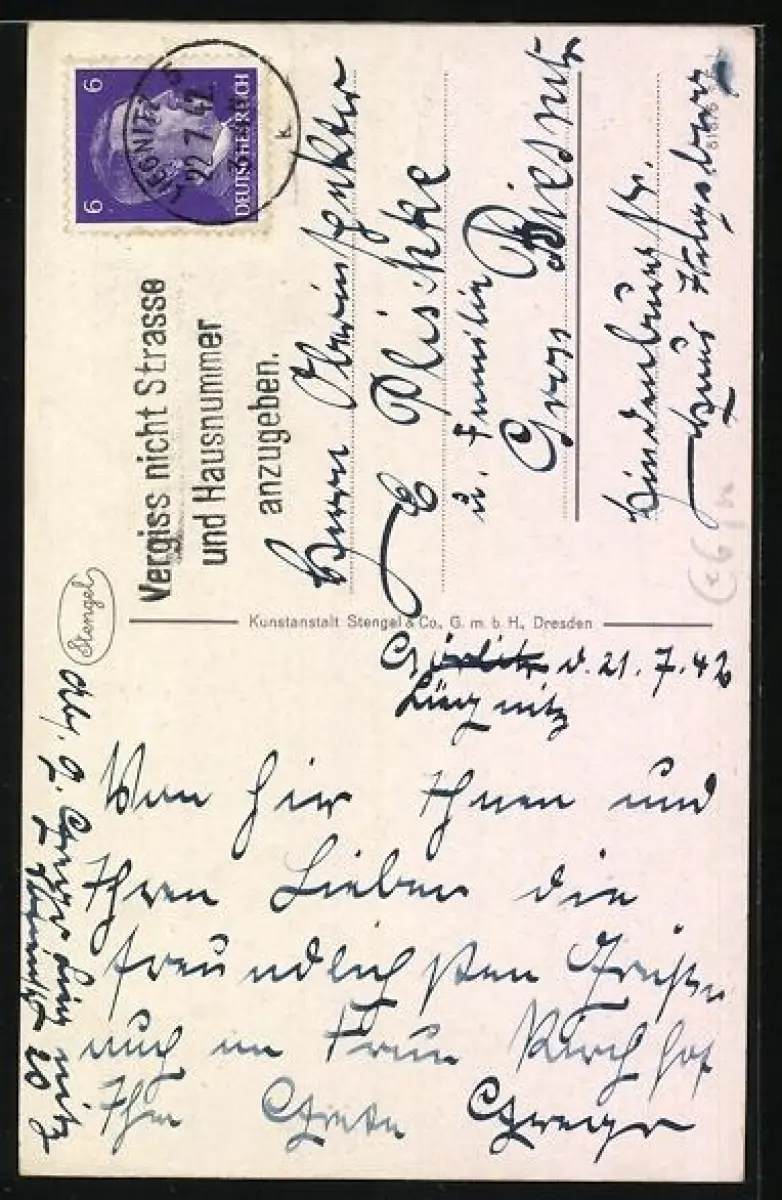 6
6
DEUTSCHES REICH
LIEGNITZ 5
22.7.42
k
Vergiss nicht Strasse
und Hausnummer
anzugeben.
Herrn Oberinspektor
E Plischke
u. Familie
Gross Biesnitz
Hindenburgstr.
Haus
Stengel
Kunstanstalt Stengel & Co., G. m. b. H., Dresden
Görlitz d. 21.7.42
Liegnitz
Von hier Ihnen und
Ihren Lieben die
freundlichsten Grüße
auch an Frau Kirchhof
Ihre Grete Gregor
Abs. G. Gregor Liegnitz
20